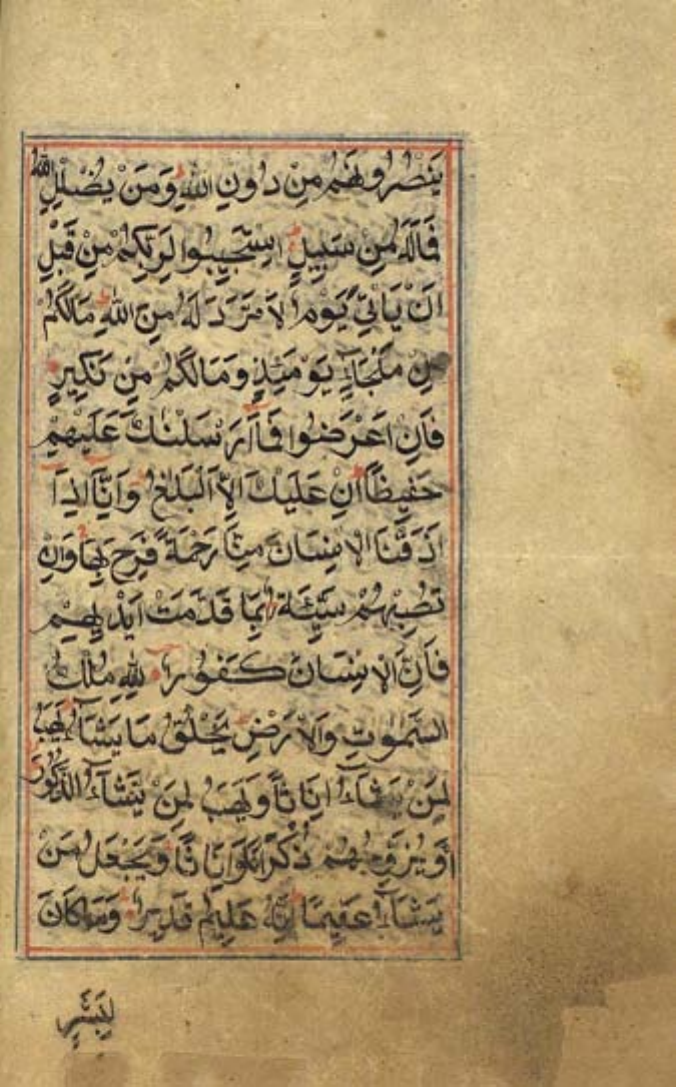 يَنْصُرُونَهُمْ مِنْ دُونِ اللهِ وَمَنْ يُضْلِلِ اللهُ
فَمَالَهُ مِنْ سَبِيلٍ اِسْتَجِيبُوا لِرَبِّكُمْ مِنْ قَبْلِ
اَنْ يَاْتِيَ يَوْمٌ لَا مَرَدَّ لَهُ مِنَ اللهِ مَالَكُمْ
مِنْ مَلْجَاٍ يَوْمَئِذٍ وَمَالَكُمْ مِنْ نَكِيرٍ
فَاِنْ اَعْرَضُوا فَمَآ اَرْسَلْنٰكَ عَلَيْهِمْ
حَفِيظًا اِنْ عَلَيْكَ اِلَّا الْبَلٰغُ وَاِنَّآ اِذَآ
اَذَقْنَا الْاِنْسَانَ مِنَّا رَحْمَةً فَرِحَ بِهَا وَاِنْ
تُصِبْهُمْ سَيِّئَةٌ بِمَا قَدَّمَتْ اَيْدِيهِمْ
فَاِنَّ الْاِنْسَانَ كَفُورٌ لِلهِ مُلْكُ
السَّمٰوٰتِ وَالْاَرْضِ يَخْلُقُ مَا يَشَآءُ يَهَبُ
لِمَنْ يَشَآءُ اِنَاثًا وَيَهَبُ لِمَنْ يَشَآءُ الذُّكُورَ
اَوْ يُزَوِّجُهُمْ ذُكْرَانًا وَاِنَاثًا وَيَجْعَلُ مَنْ
يَشَآءُ عَقِيمًا اِنَّهُ عَلِيمٌ قَدِيرٌ وَمَا كَانَ
لِبَشَرٍ